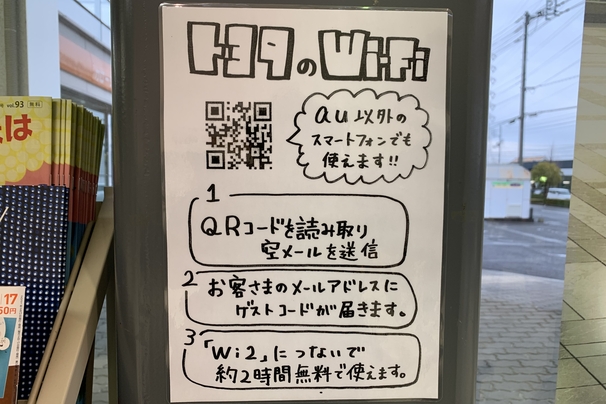 トヨタのWiFi
au以外の
スマートフォンでも
使えます!!
1
QRコードを読み取り
空メールを送信
2
お客さまのメールアドレスに
ゲストコードが届きます。
3
「Wi2」につないで
約2時間無料で使えます。
vol.93
無料
は
17
50円